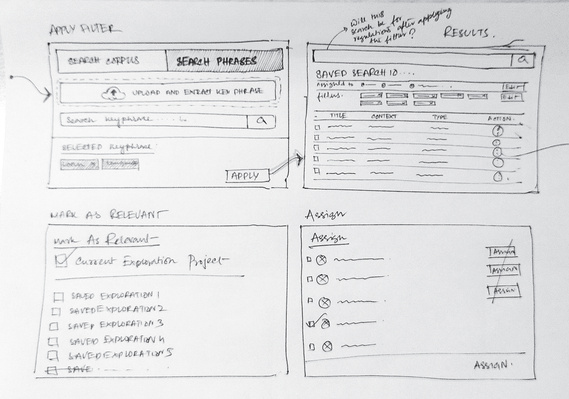 APPLY FILTER
SEARCH CORPUS
SEARCH PHRASES
UPLOAD AND EXTRACT KEY PHRASE
Search keyphrase
SELECTED keyphrase
APPLY
Will this
search be for
regulations after applying
the filter?
RESULTS.
SAVED SEARCH ID...
assigned to
Edit
filters:
Edit
TITLE CONTEXT TYPE ACTION
MARK AS RELEVANT
Mark As Relevant
Current Exploration Project
SAVED EXPLORATION 1
SAVED EXPLORATION 2
SAVED EXPLORATION 3
SAVED EXPLORATION 4
SAVED EXPLORATION 5
SAVE
Assign
Assign
Assign
Assign
Assign
ASSIGN.